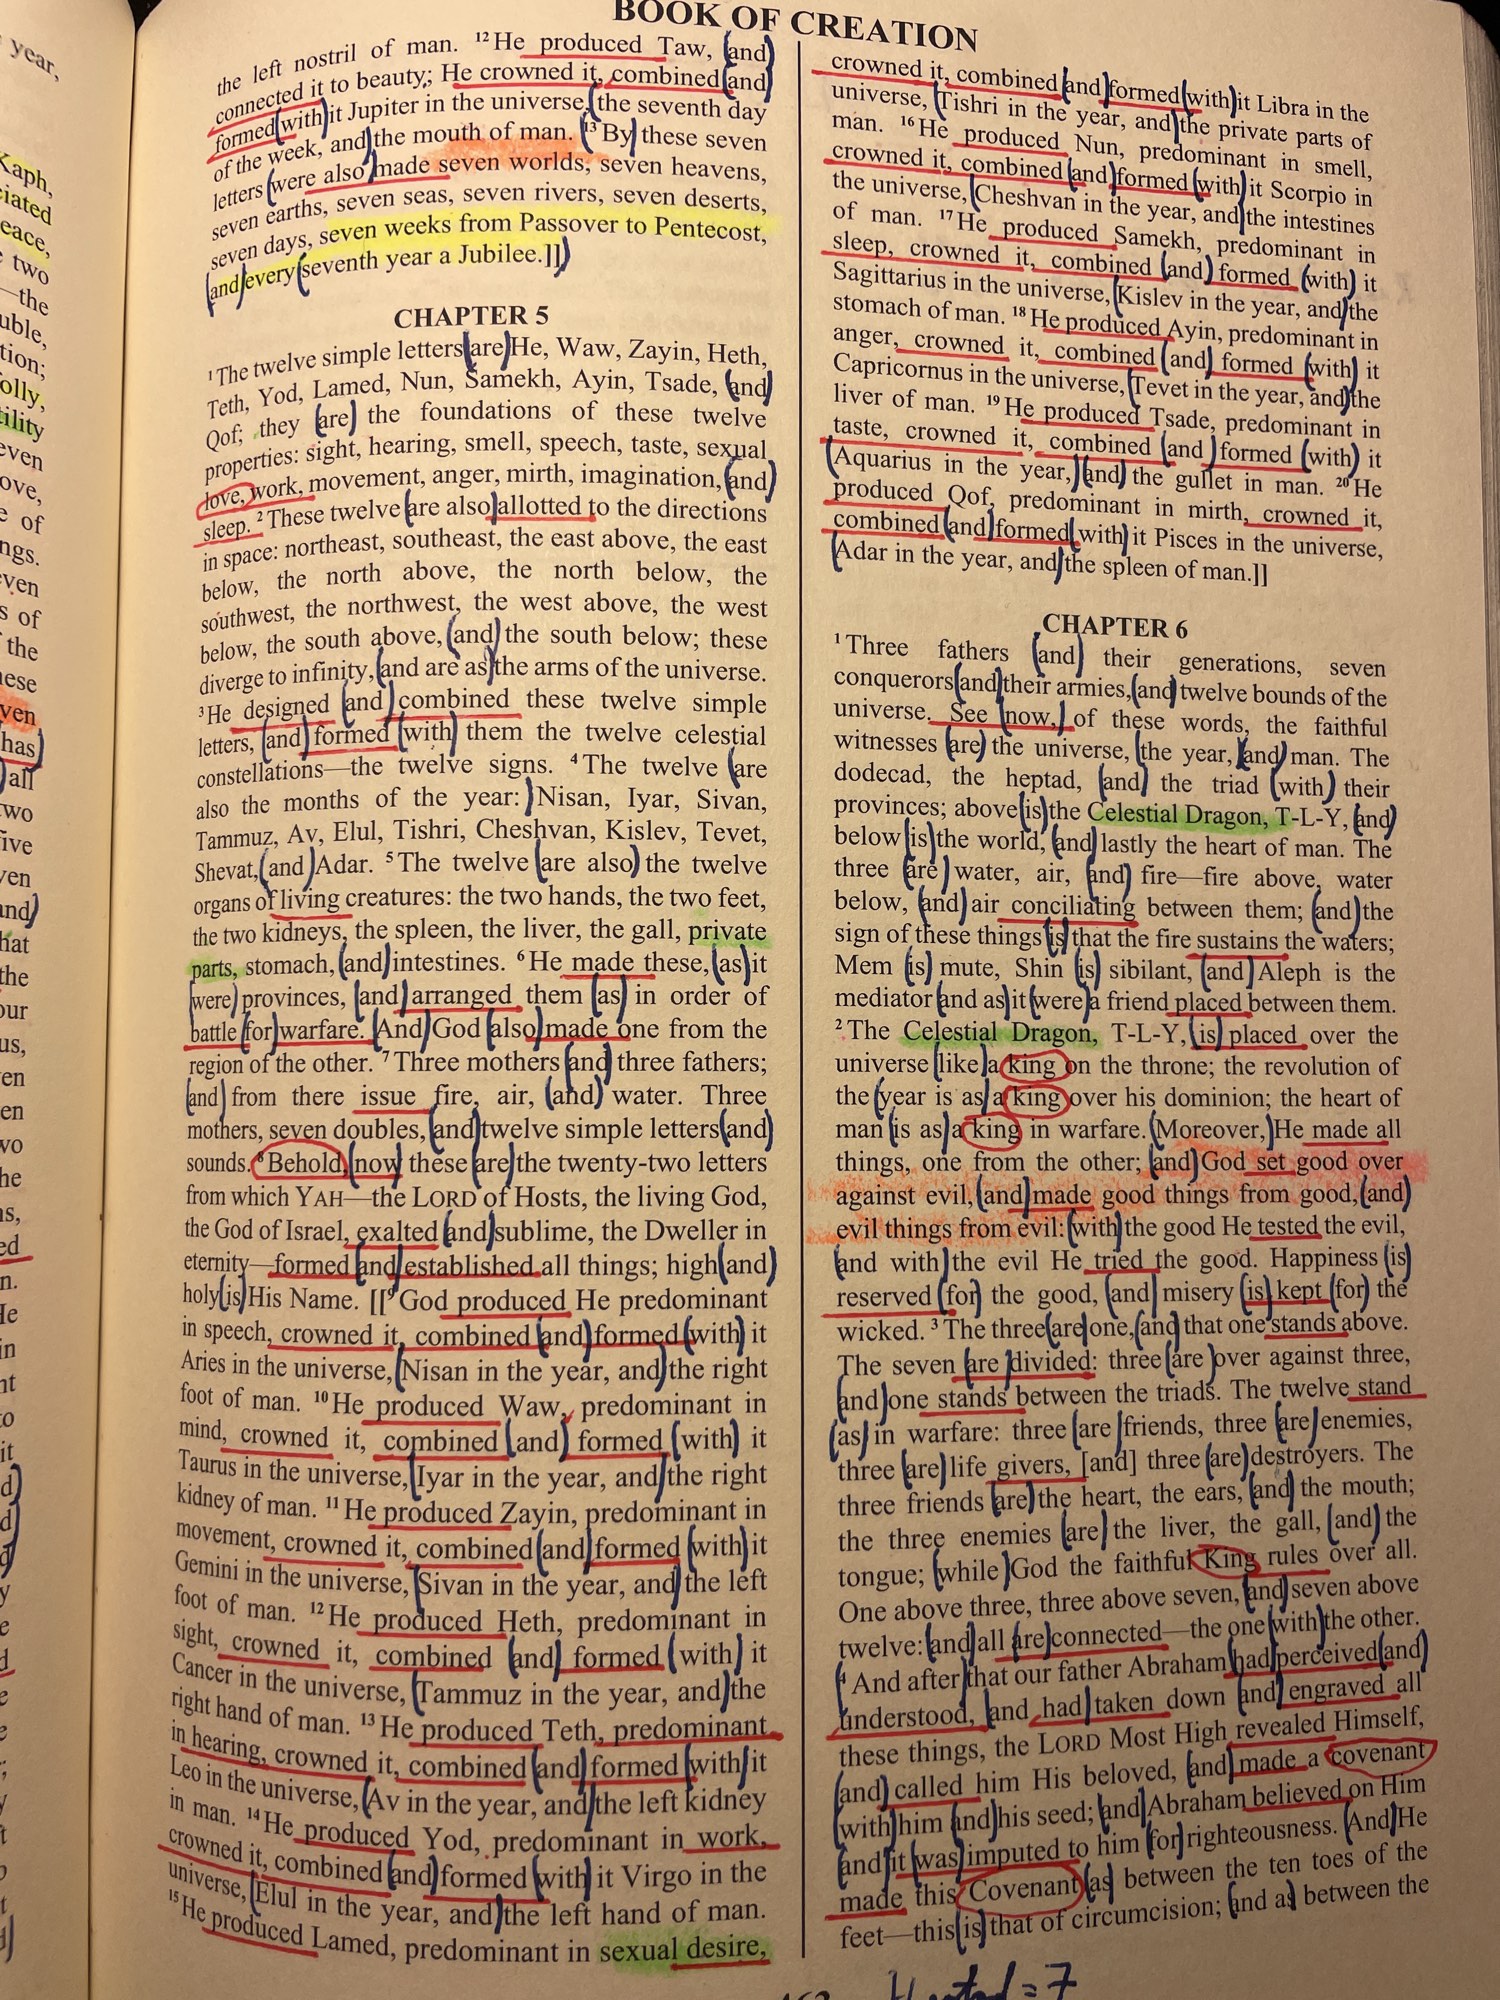 BOOK OF CREATION
year,
Kaph,
ciated
eace,
two
—the
uble,
tion;
olly,
tility
even
ove,
e of
ngs.
even
s of
the
hese
ven
has)
all
two
five
ven
and)
hat
the
our
us,
en
en
wo
he
as,
ed
n.
He
in
nt
to
it
the left nostril of man. ¹²He produced Taw, (and)
connected it to beauty; He crowned it, combined (and)
formed (with) it Jupiter in the universe, (the seventh day
of the week, and) the mouth of man. (¹³By) these seven
letters (were also) made seven worlds, seven heavens,
seven earths, seven seas, seven rivers, seven deserts,
seven days, seven weeks from Passover to Pentecost,
(and) every (seventh year a Jubilee.]])
CHAPTER 5
¹The twelve simple letters (are) He, Waw, Zayin, Heth,
Teth, Yod, Lamed, Nun, Samekh, Ayin, Tsade, (and)
Qof; they (are) the foundations of these twelve
properties: sight, hearing, smell, speech, taste, sexual
love, work, movement, anger, mirth, imagination, (and)
sleep. ²These twelve (are also) allotted to the directions
in space: northeast, southeast, the east above, the east
below, the north above, the north below, the
southwest, the northwest, the west above, the west
below, the south above, (and) the south below; these
diverge to infinity, (and are as) the arms of the universe.
³He designed (and) combined these twelve simple
letters, (and) formed (with) them the twelve celestial
constellations—the twelve signs. ⁴The twelve (are
also the months of the year:) Nisan, Iyar, Sivan,
Tammuz, Av, Elul, Tishri, Cheshvan, Kislev, Tevet,
Shevat, (and) Adar. ⁵The twelve (are also) the twelve
organs of living creatures: the two hands, the two feet,
the two kidneys, the spleen, the liver, the gall, private
parts, stomach, (and) intestines. ⁶He made these, (as) it
(were) provinces, (and) arranged them (as) in order of
battle (for) warfare. (And) God (also) made one from the
region of the other. ⁷Three mothers (and) three fathers;
(and) from there issue fire, air, (and) water. Three
mothers, seven doubles, (and) twelve simple letters (and)
sounds. ⁸Behold, (now) these (are) the twenty-two letters
from which YAH—the LORD of Hosts, the living God,
the God of Israel, exalted (and) sublime, the Dweller in
eternity—formed (and) established all things; high (and)
holy (is) His Name. [[⁹God produced He predominant
in speech, crowned it, combined (and) formed (with) it
Aries in the universe, (Nisan in the year, and) the right
foot of man. ¹⁰He produced Waw, predominant in
mind, crowned it, combined (and) formed (with) it
Taurus in the universe, (Iyar in the year, and) the right
kidney of man. ¹¹He produced Zayin, predominant in
movement, crowned it, combined (and) formed (with) it
Gemini in the universe, (Sivan in the year, and) the left
foot of man. ¹²He produced Heth, predominant in
sight, crowned it, combined (and) formed (with) it
Cancer in the universe, (Tammuz in the year, and) the
right hand of man. ¹³He produced Teth, predominant
in hearing, crowned it, combined (and) formed (with) it
Leo in the universe, (Av in the year, and) the left kidney
in man. ¹⁴He produced Yod, predominant in work,
crowned it, combined (and) formed (with) it Virgo in the
universe, (Elul in the year, and) the left hand of man.
¹⁵He produced Lamed, predominant in sexual desire,
crowned it, combined (and) formed (with) it Libra in the
universe, (Tishri in the year, and) the private parts of
man. ¹⁶He produced Nun, predominant in smell,
crowned it, combined (and) formed (with) it Scorpio in
the universe, (Cheshvan in the year, and) the intestines
of man. ¹⁷He produced Samekh, predominant in
sleep, crowned it, combined (and) formed (with) it
Sagittarius in the universe, (Kislev in the year, and) the
stomach of man. ¹⁸He produced Ayin, predominant in
anger, crowned it, combined (and) formed (with) it
Capricornus in the universe, (Tevet in the year, and) the
liver of man. ¹⁹He produced Tsade, predominant in
taste, crowned it, combined (and) formed (with) it
(Aquarius in the year,) (and) the gullet in man. ²⁰He
produced Qof, predominant in mirth, crowned it,
combined (and) formed (with) it Pisces in the universe,
(Adar in the year, and) the spleen of man.]]
CHAPTER 6
¹Three fathers (and) their generations, seven
conquerors (and) their armies, (and) twelve bounds of the
universe. See (now,) of these words, the faithful
witnesses (are) the universe, (the year, (and) man. The
dodecad, the heptad, (and) the triad (with) their
provinces; above (is) the Celestial Dragon, T-L-Y, (and)
below (is) the world, (and) lastly the heart of man. The
three (are) water, air, (and) fire—fire above, water
below, (and) air conciliating between them; (and) the
sign of these things (is) that the fire sustains the waters;
Mem (is) mute, Shin (is) sibilant, (and) Aleph is the
mediator (and as) it (were) a friend placed between them.
²The Celestial Dragon, T-L-Y, (is) placed over the
universe (like) a king on the throne; the revolution of
the (year is as) a king over his dominion; the heart of
man (is as) a king in warfare. (Moreover,) He made all
things, one from the other; (and) God set good over
against evil, (and) made good things from good, (and)
evil things from evil: (with) the good He tested the evil,
(and with) the evil He tried the good. Happiness (is)
reserved (for) the good, (and) misery (is) kept (for) the
wicked. ³The three (are) one, (and) that one stands above.
The seven (are) divided: three (are) over against three,
(and) one stands between the triads. The twelve stand
(as) in warfare: three (are) friends, three (are) enemies,
three (are) life givers, [and] three (are) destroyers. The
three friends (are) the heart, the ears, (and) the mouth;
the three enemies (are) the liver, the gall, (and) the
tongue; (while) God the faithful King rules over all.
One above three, three above seven, (and) seven above
twelve: (and) all (are) connected—the one (with) the other.
(⁴And after) that our father Abraham (had) perceived (and)
understood, (and had) taken down (and) engraved all
these things, the LORD Most High revealed Himself,
(and) called him His beloved, (and) made a covenant
(with) him (and) his seed; (and) Abraham believed on Him
(and) it (was) imputed to him (for) righteousness. (And) He
made this Covenant (as) between the ten toes of the
feet—this (is) that of circumcision; (and as) between the
= 7